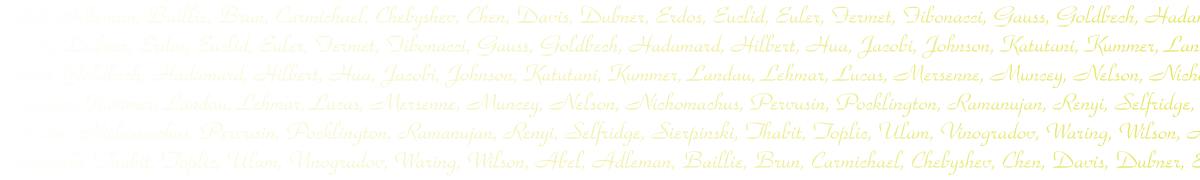 Adleman, Baillie, Brun, Carmichael, Chebyshev, Chen, Davis, Dubner, Erdos, Euclid, Euler, Fermet, Fibonacci, Gauss, Goldbach,
Dubner, Erdos, Euclid, Euler, Fermet, Fibonacci, Gauss, Goldbech, Hadamard, Hilbert, Hua, Jacobi, Johnson, Katutani, Kummer,
Goldbach, Hadamard, Hilbert, Hua, Jacobi, Johnson, Katutani, Kummer, Landau, Lehmar, Lucas, Mersenne, Muncey, Nelson,
Kummer, Landau, Lehmar, Lucas, Mersenne, Muncey, Nelson, Nichomachus, Pervusin, Pocklington, Ramanujan, Renyi, Selfridge,
Nichomachus, Pervusin, Pocklington, Ramanujan, Renyi, Selfridge, Sierpinski, Thabit, Toplic, Ulam, Vinogradov, Waring, Wilson,
Thabit, Toplic, Ulam, Vinogradov, Waring, Wilson, Abel, Adleman, Baillie, Brun, Carmichael, Chebyshev, Chen, Davis, Dubner,